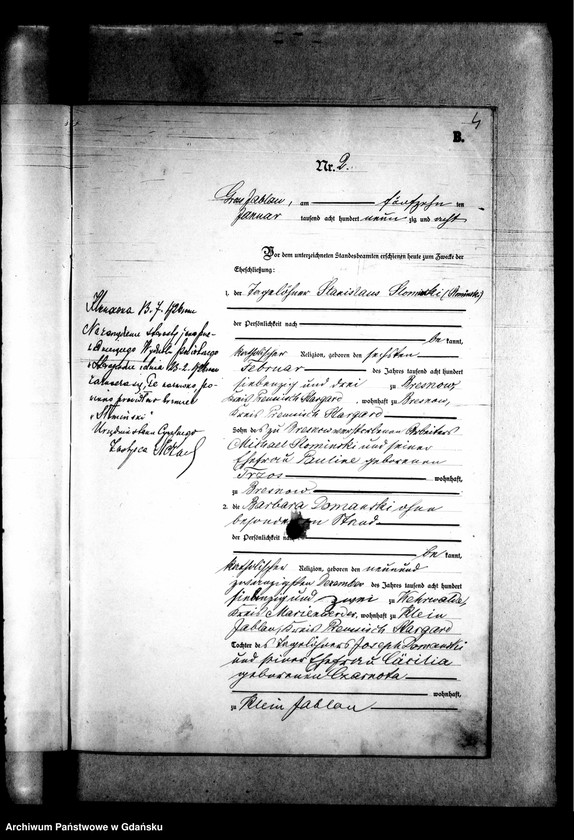 4
B.
Nr. 2.
Gross Jablau, am fünfzehn ten
Januar tausend acht hundert neunzig und acht
Vor dem unterzeichneten Standesbeamten erschienen heute zum Zwecke der
Eheschließung:
1. der Tagelöhner Stanislaus Slominski (Slminski)
der Persönlichkeit nach
be kannt,
katholischer Religion, geboren den sechsten
Februar des Jahres tausend acht hundert
siebenzig und drei zu Bresnow
Kreis Preussisch Stargard, wohnhaft zu Bresnow,
Kreis Preussisch Stargard
Sohn des zu Bresnow verstorbenen Arbeiters
Michael Slominski und seiner
Ehefrau Pauline geborenen
Trzos wohnhaft,
zu Bresnow
2. die Barbara Domanski ohne
besonderen Stand
der Persönlichkeit nach
be kannt,
katholischer Religion, geboren den neunund
zwanzigsten Dezember des Jahres tausend acht hundert
siebenzig und zwei zu Wehrwalde,
Kreis Marienwerder, wohnhaft zu Klein
Jablau, Kreis Preussisch Stargard
Tochter des Tagelöhners Joseph Domanski
und seiner Ehefrau Cäcilia
geborenen Czarnota
wohnhaft,
zu Klein Jablau
Na zarządzenie
"Słomiński"
Urzędnik Stanu Cywilnego
Archiwum Państwowe w Gdańsku